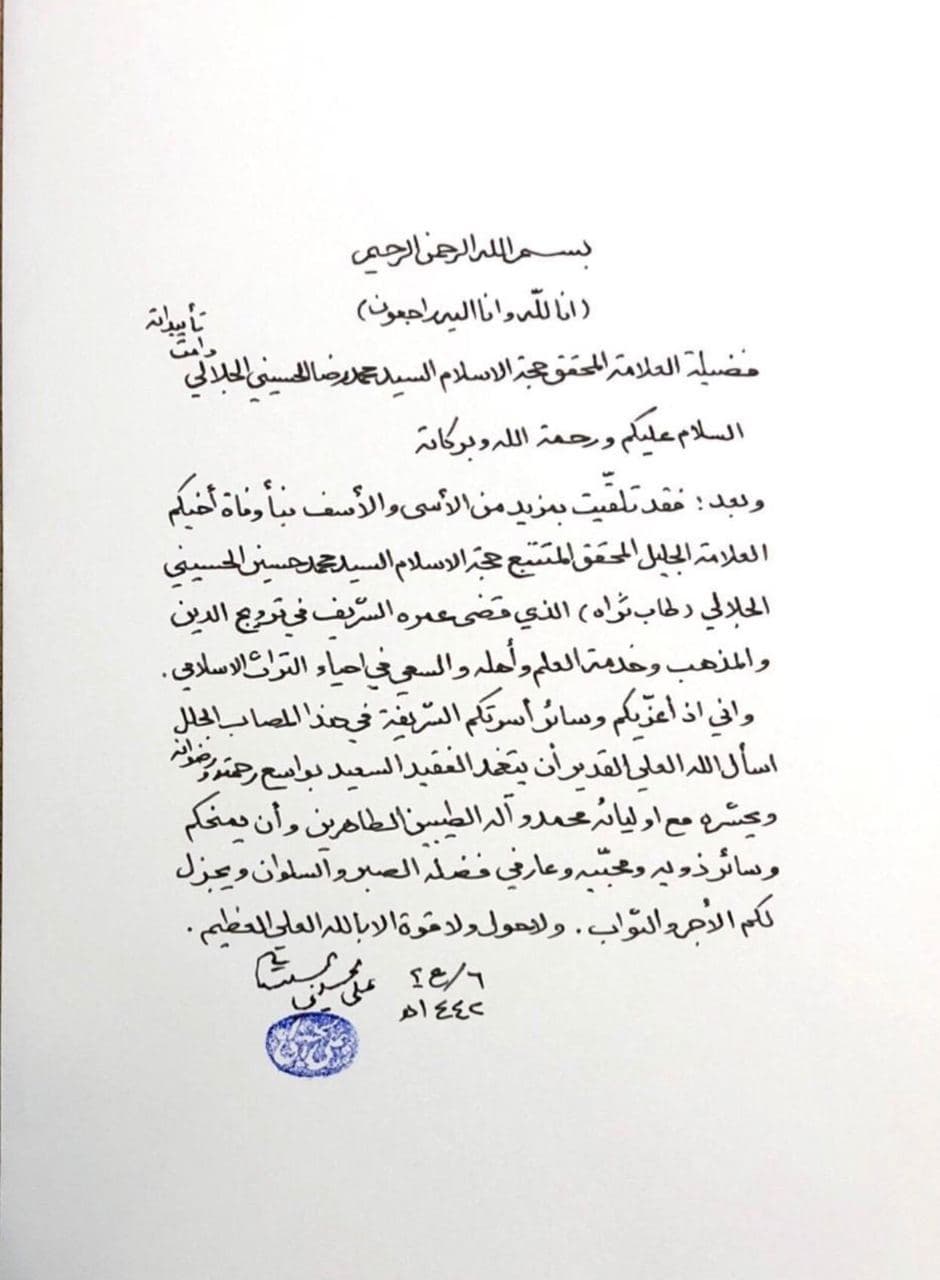 بسم الله الرحمن الرحيم
(انا لله وانا اليه راجعون)
فضيلة العلامة المحقق حجة الاسلام السيد محمد رضا الحسيني الجلالي دامت تأييداته
السلام عليكم ورحمة الله وبركاته
وبعد : فقد تلقّيت بمزيد من الأسى والأسف نبأ وفاة أخيكم
العلامة الجليل المحقق المتتبع حجة الاسلام السيد محمد حسين الحسيني
الجلالي (طاب ثراه) الذي قضى عمره الشريف في ترويج الدين
والمذهب وخدمة العلم وأهله والسعي في احياء التراث الاسلامي .
واني اذ أعزّيكم وسائر أسرتكم الشريفة في هذا المصاب الجلل
اسأل الله العلي القدير أن يتغمد الفقيد السعيد بواسع رحمته ورضوانه
ويحشره مع اوليائه محمد وآله الطيبين الطاهرين وأن يمنحكم
وسائر ذويه ومحبّيه وعارفي فضله الصبر والسلوان ويجزل
لكم الأجر والثواب . ولا حول ولا قوة الا بالله العلي العظيم .
٦/ع٢
١٤٤٢هـ
علي الحسيني السيستاني